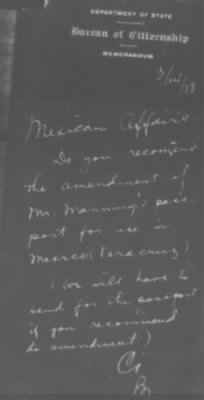 DEPARTMENT OF STATE
Bureau of Citizenship
MEMORANDUM
3/14/18
Mexican Affairs.
Do you recommend
the amendment of
Mr. Manning's pass-
port for use in
Mexico (Vera Cruz)
(We will have to
send for the passport
if you recommend
its amendment)